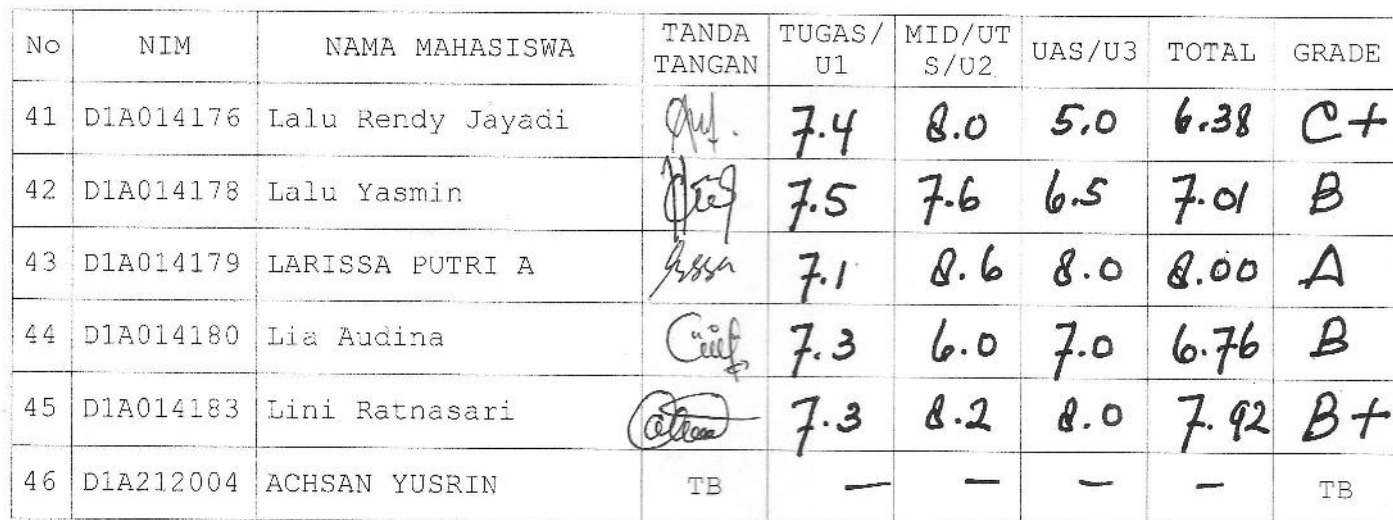 No NIM NAMA MAHASISWA TANDA TANGAN TUGAS/U1 MID/UTS/U2 UAS/U3 TOTAL GRADE
41 D1A014176 Lalu Rendy Jayadi 7.4 8.0 5.0 6.38 C+
42 D1A014178 Lalu Yasmin 7.5 7.6 6.5 7.01 B
43 D1A014179 LARISSA PUTRI A 7.1 8.6 8.0 8.00 A
44 D1A014180 Lia Audina 7.3 6.0 7.0 6.76 B
45 D1A014183 Lini Ratnasari 7.3 8.2 8.0 7.92 B+
46 D1A212004 ACHSAN YUSRIN TB — — — — TB